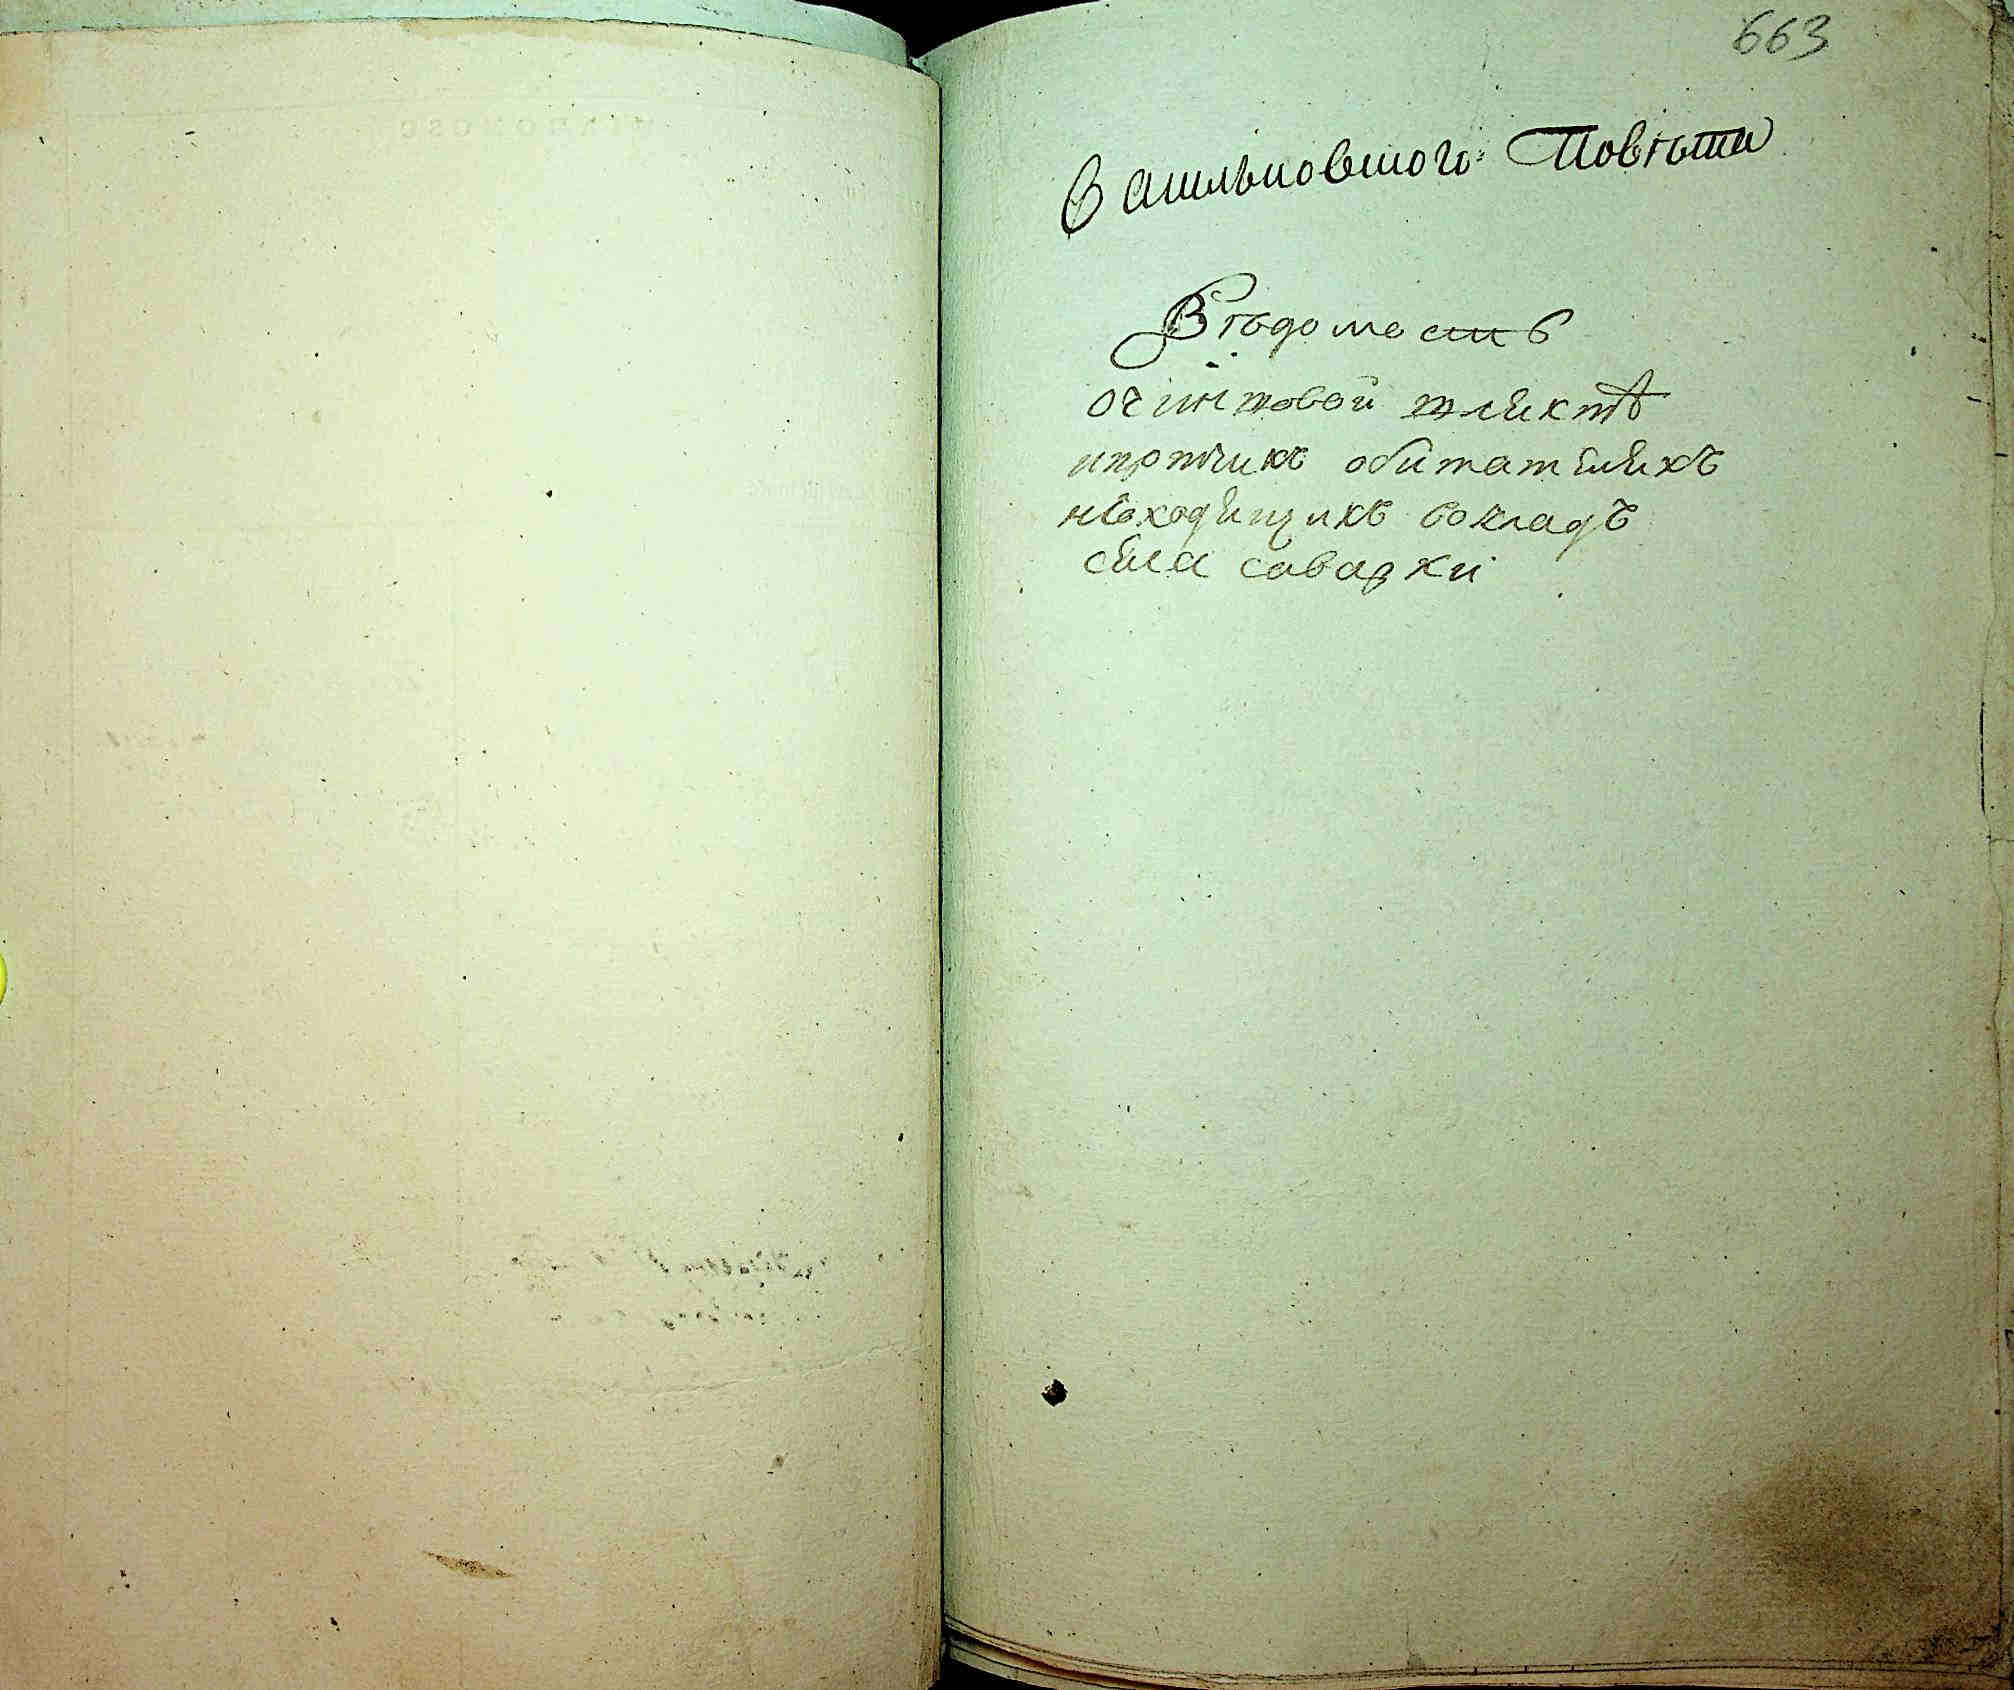 663
Васильковского Повѣта
Вѣдомость
очиншовой шляхтѣ
и протчихъ обитателяхъ
невходящихъ вокладъ
села саварки